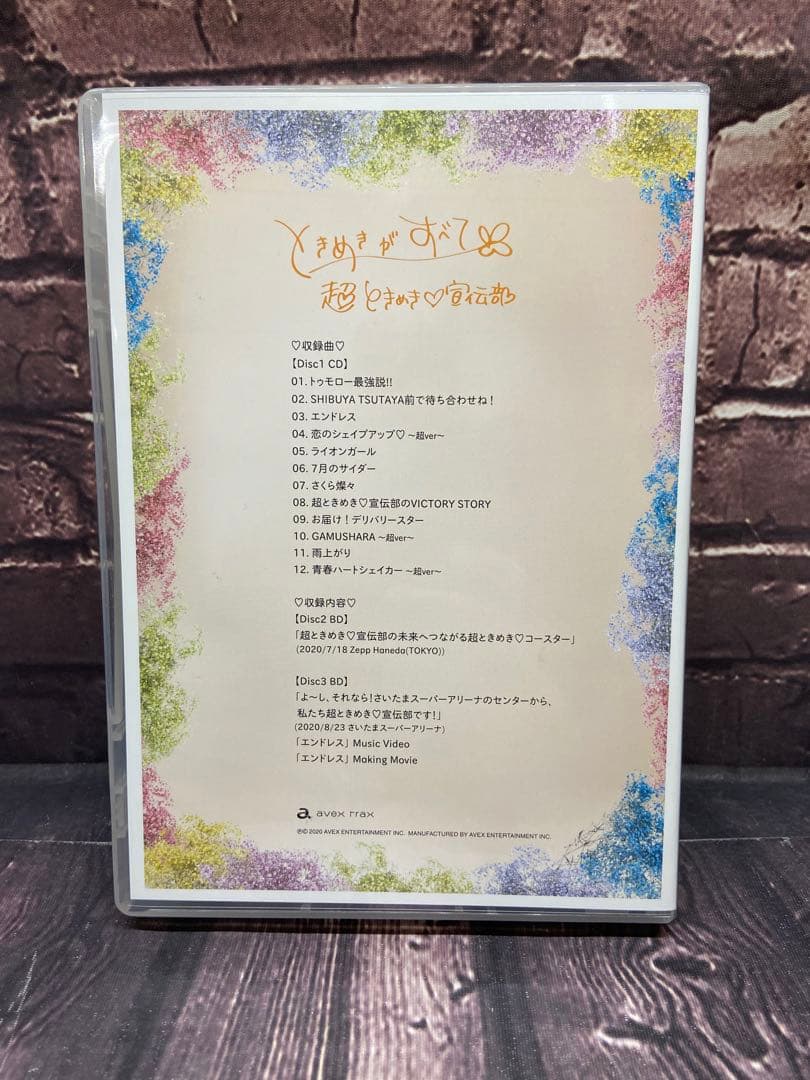 ときめきがすべて
超ときめき♡宣伝部
♡収録曲♡
【Disc1 CD】
01. トゥモロー最強説!!
02. SHIBUYA TSUTAYA前で待ち合わせね！
03. エンドレス
04. 恋のシェイプアップ♡ ～超ver～
05. ライオンガール
06. 7月のサイダー
07. さくら燦々
08. 超ときめき♡宣伝部のVICTORY STORY
09. お届け！デリバリースター
10. GAMUSHARA ～超ver～
11. 雨上がり
12. 青春ハートシェイカー ～超ver～
♡収録内容♡
【Disc2 BD】
「超ときめき♡宣伝部の未来へつながる超ときめき♡コースター」
(2020/7/18 Zepp Haneda(TOKYO))
【Disc3 BD】
「よ～し、それなら！さいたまスーパーアリーナのセンターから、
私たち超ときめき♡宣伝部です！」
(2020/8/23 さいたまスーパーアリーナ)
「エンドレス」 Music Video
「エンドレス」 Making Movie
a avex trax
℗© 2020 AVEX ENTERTAINMENT INC. MANUFACTURED BY AVEX ENTERTAINMENT INC.